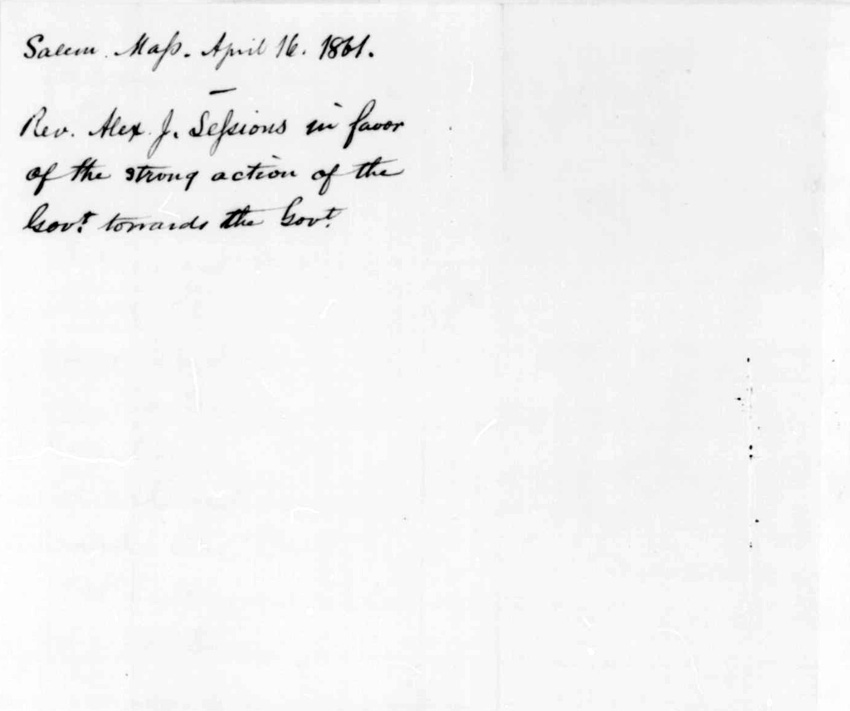 Salem. Mass. April 16. 1861.
—
Rev. Alex. J. Sessions in favor
of the strong action of the
Govt. towards the Govt.